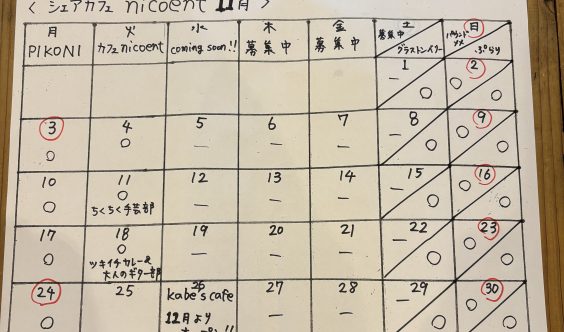 < シェアカフェ nicoent 11月 >
月 火 水 木 金 土 日
PIKONI カフェnicoent coming soon!! 募集中 募集中 募集中 グラストンイリー
1 2
3 4 5 6 7 8 9
10 11 12 13 14 15 16
ちくちく手芸部
17 18 19 20 21 22 23
ツキイチカレー&
大人のギター部
24 25 26 27 28 29 30
kabe's cafe
12月より